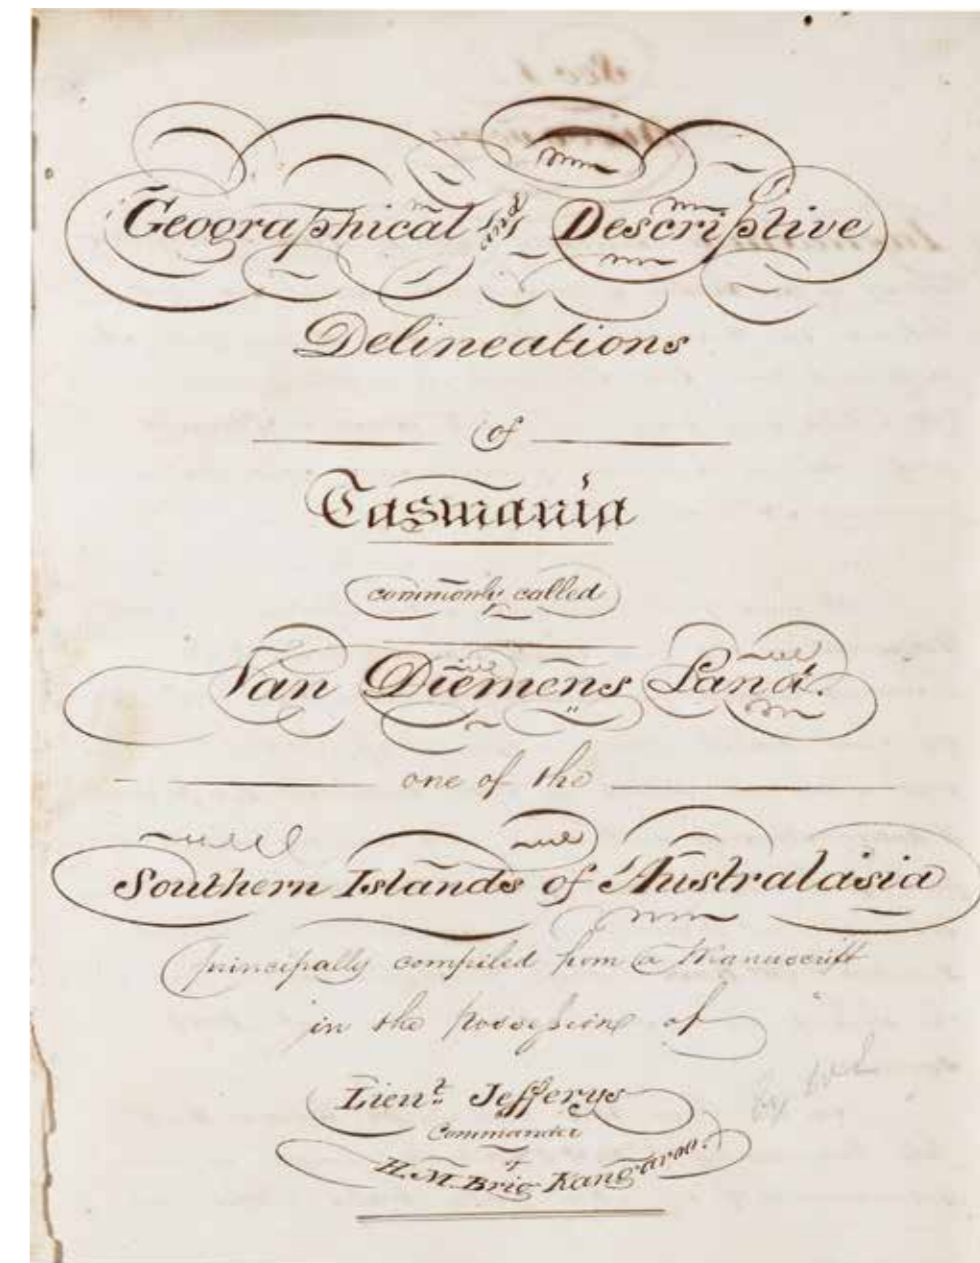 Geographical and Descriptive
Delineations
of
Tasmania
commonly called
Van Diemens Land.
one of the
Southern Islands of Australasia
principally compiled from a Manuscript
in the possession of
Lieut. Jefferys
Commander
of
H.M. Brig Kangaroo.